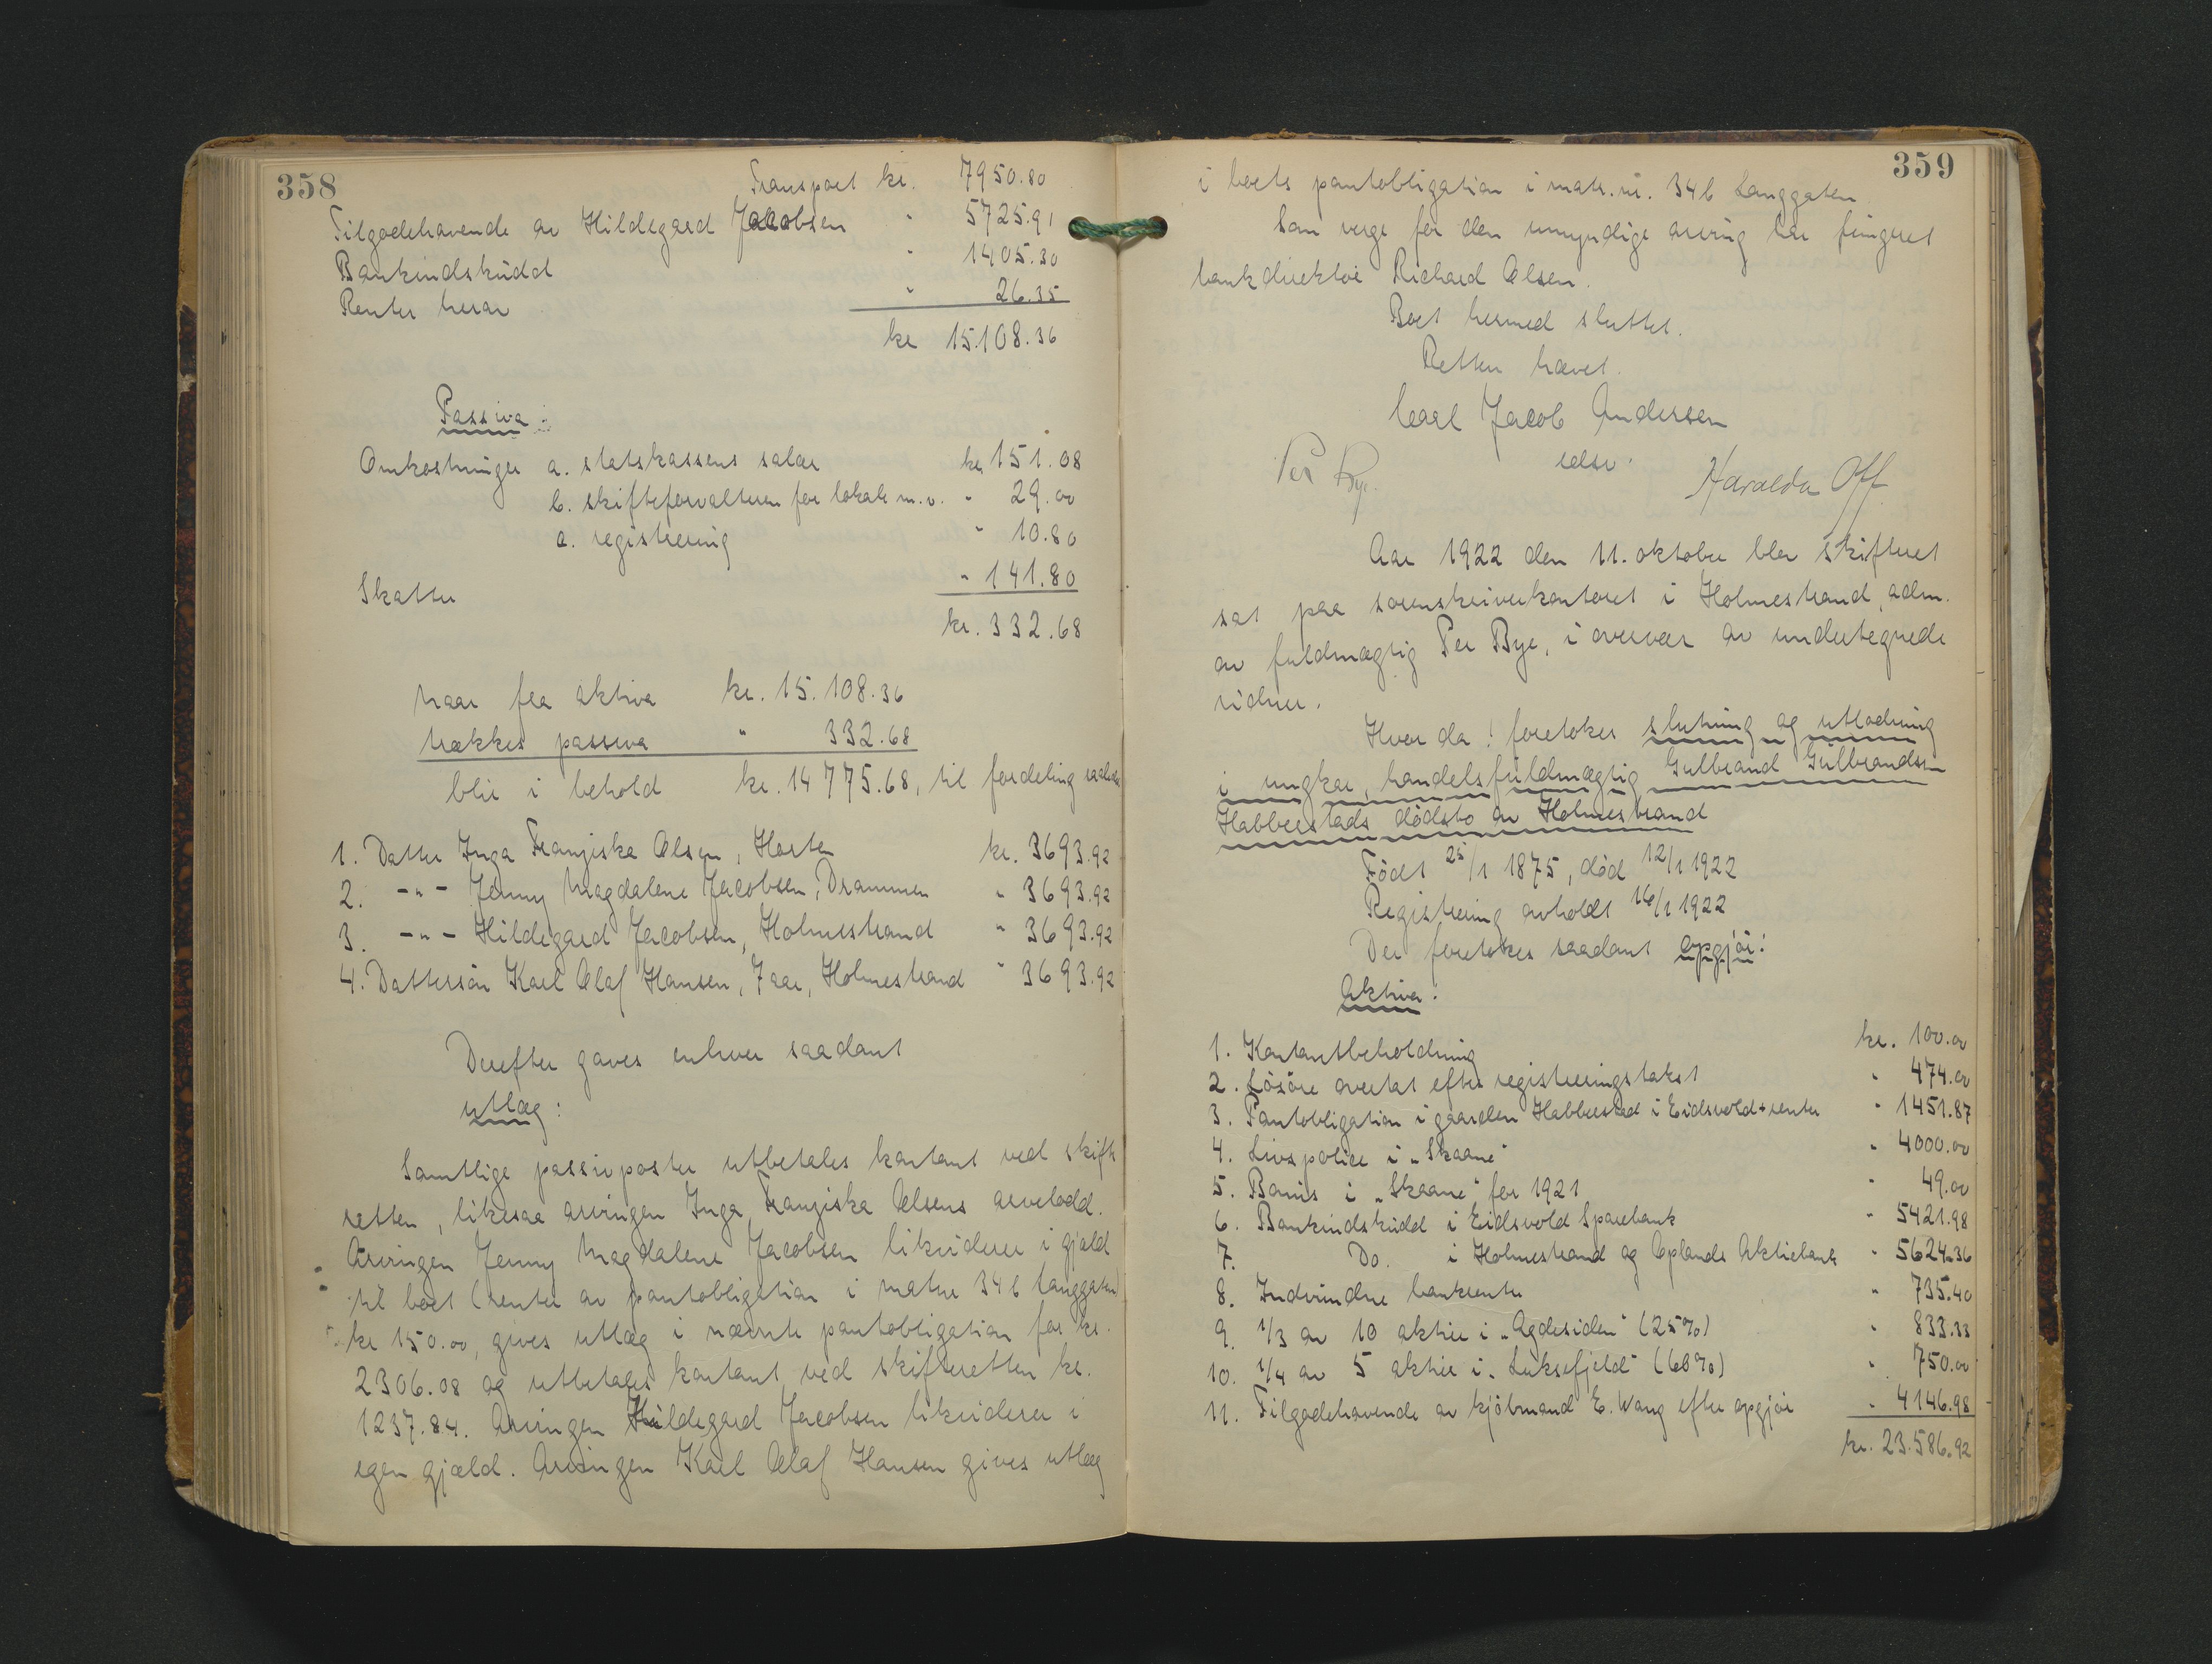 358
Transport kr. 7950.80
Tilgodehavende av Hildegard Jacobsen " 5725.91
Bankindskudd " 1405.30
Renter herav " 26.35
kr 15.108.36
Passiva:
Omkostninger a. statskassens salær kr 151.08
b. skifteforvalteren for lokale m.v. " 29.00
c. registrering " 10.80
Skatter " 141.80
kr. 332.68
Naar fra aktiva kr. 15.108.36
trækkes passiva " 332.68
blir i behold kr. 14 775.68, til fordeling saaledes
1. Datter Inga Franziska Olsen, Horten kr. 3693.92
2. -"- Jenny Magdalene Jacobsen, Drammen " 3693.92
3. -"- Hildegard Jacobsen, Holmestrand " 3693.92
4. Dattersön Karl Olaf Hansen, 7 aar, Holmestrand " 3693.92
Derefter gaves enhver saadant
utlæg:
Samtlige passivposter utbetales kontant ved skifte
retten, likesaa arvingen Inga Franziska Olsens arvelodd.
Arvingen Jenny Magdalene Jacobsen likviderer i gjæld
til boet (renter av pantobligation i matnr 34 b Langgaten)
kr 150.00, gives utlæg i nævnte pantobligation for kr.
2306.08 og utbetales kontant ved skifteretten kr.
1237.84. Arvingen Hildegard Jacobsen likviderer i
egen gjæld. Arvingen Karl Olaf Hansen gives utlæg
359
i boets pantobligation i matr.nr. 34 b Langgaten.
Som verge for den umyndige arving har fungert
bankdirektör Richard Olsen.
Boet hermed sluttet.
Retten hævet.
Carl Jacob Andersen
cslsv.
Per Bye. Haralda Off
Aar 1922 den 11. oktober blev skifteret
sat paa sorenskriverkontoret i Holmestrand, adm.
av fuldmægtig Per Bye, i overvær av undertegnede
vidner.
Hvor da! foretokes slutning og utlodning
i ungkar, handelsfuldmægtig Gulbrand Gulbrandsen
Habberstads dödsbo av Holmestrand
Födt 25/1 1875, död 12/1 1922
Registrering avholdt 16/1 1922
Der foretokes saadant opgjör:
Aktiva:
1. Kontantbeholdning kr. 100.00
2. Lösöre overtat efter registreringstakst " 474.00
3. Pantobligation i gaarden Habberstad i Eidsvold + renter " 1451.87
4. Livspolice i "Skaane" " 4000.00
5. Bonus i "Skaane" for 1921 " 49.00
6. Bankindskudd i Eidsvold Sparebank " 5421.98
7. Do. i Holmestrand og Oplands Aktiebank " 5624.36
8. Indvundne bankrenter " 735.40
9. 1/3 av 10 aktier i "Agdesiden" (25%) " 833.33
10. 1/4 av 5 aktier i "Luksefjeld" (60%) " 750.00
11. Tilgodehavende av kjöbmand E. Wang efter opgjör " 4146.98
kr. 23.586.92